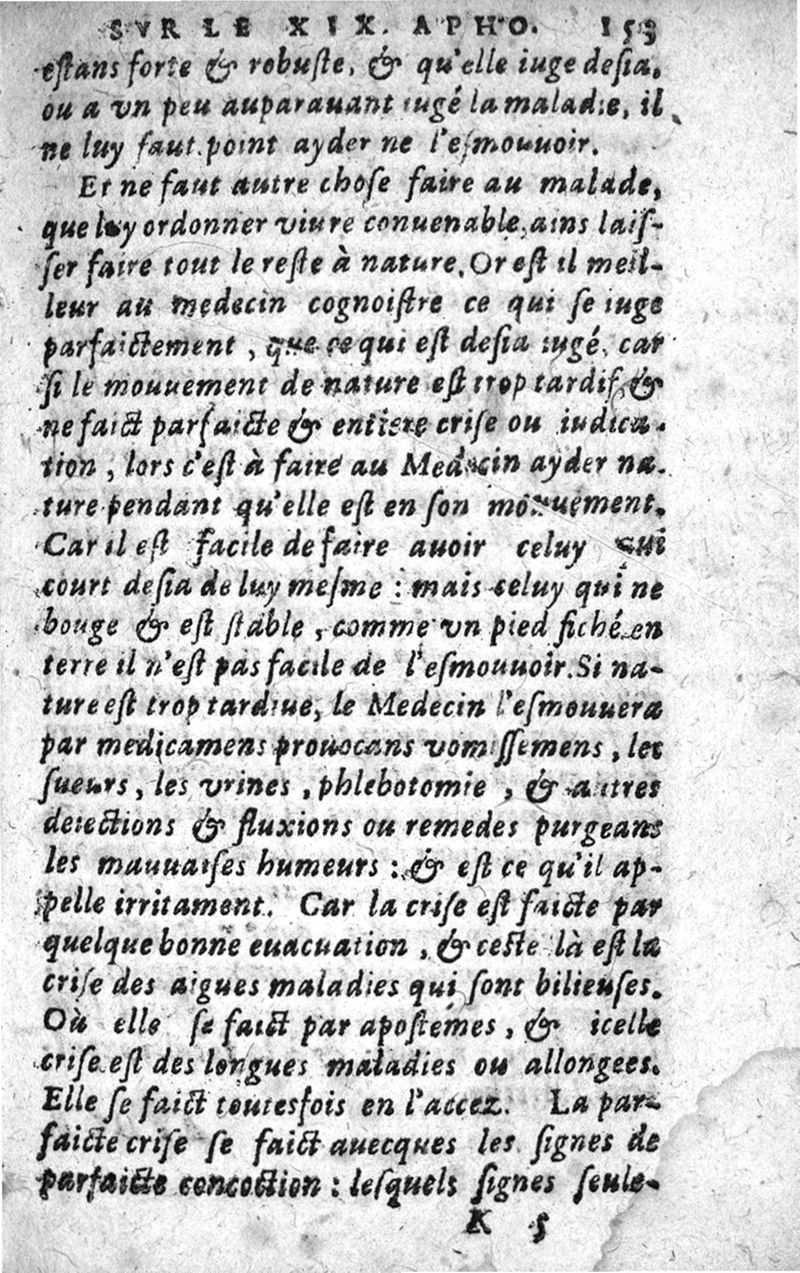 SVR LE XIX. APHO. 153
eſtans forte & robuſte, & qu'elle iuge deſia,
ou a vn peu auparauant iugé la maladie, il
ne luy faut point ayder ne l'eſmouuoir.
Et ne faut autre choſe faire au malade,
que luy ordonner viure conuenable, ains laiſ-
ſer faire tout le reſte à nature. Or eſt il meil-
leur au medecin cognoiſtre ce qui ſe iuge
parfaictement, que ce qui eſt deſia iugé, car
ſi le mouuement de nature eſt trop tardif, &
ne faict parfaicte & entiere criſe ou iudica-
tion, lors c'eſt à faire au Medecin ayder na-
ture pendant qu'elle eſt en ſon mouuement.
Car il eſt facile de faire auoir celuy qui
court deſia de luy meſme : mais celuy qui ne
bouge & eſt ſtable, comme vn pied fiché en
terre il n'eſt pas facile de l'eſmouuoir. Si na-
ture eſt trop tardiue, le Medecin l'eſmouuera
par medicamens prouocans vomiſſemens, les
ſueurs, les vrines, phlebotomie, & autres
detections & fluxions ou remedes purgeans
les mauuaiſes humeurs : & eſt ce qu'il ap-
pelle irritament. Car la criſe eſt faicte par
quelque bonne euacuation, & ceſte là eſt la
criſe des aigues maladies qui ſont bilieuſes.
Où elle ſe faict par apoſtemes, & icelle
criſe eſt des longues maladies ou allongees.
Elle ſe faict toutesfois en l'accez. La par-
faicte criſe ſe faict auecques les ſignes de
parfaicte concoction : leſquels ſignes ſeule-
K 5